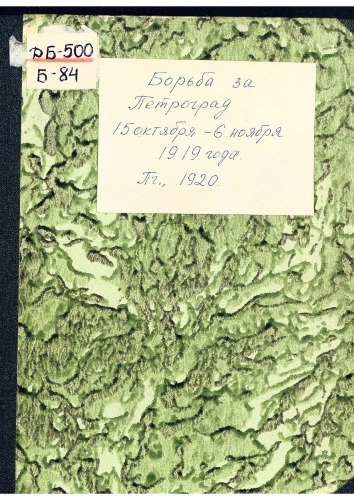 РБ-500
Б-84
Борьба за
Петроград
15 октября - 6 ноября
1919 года.
Пг., 1920.